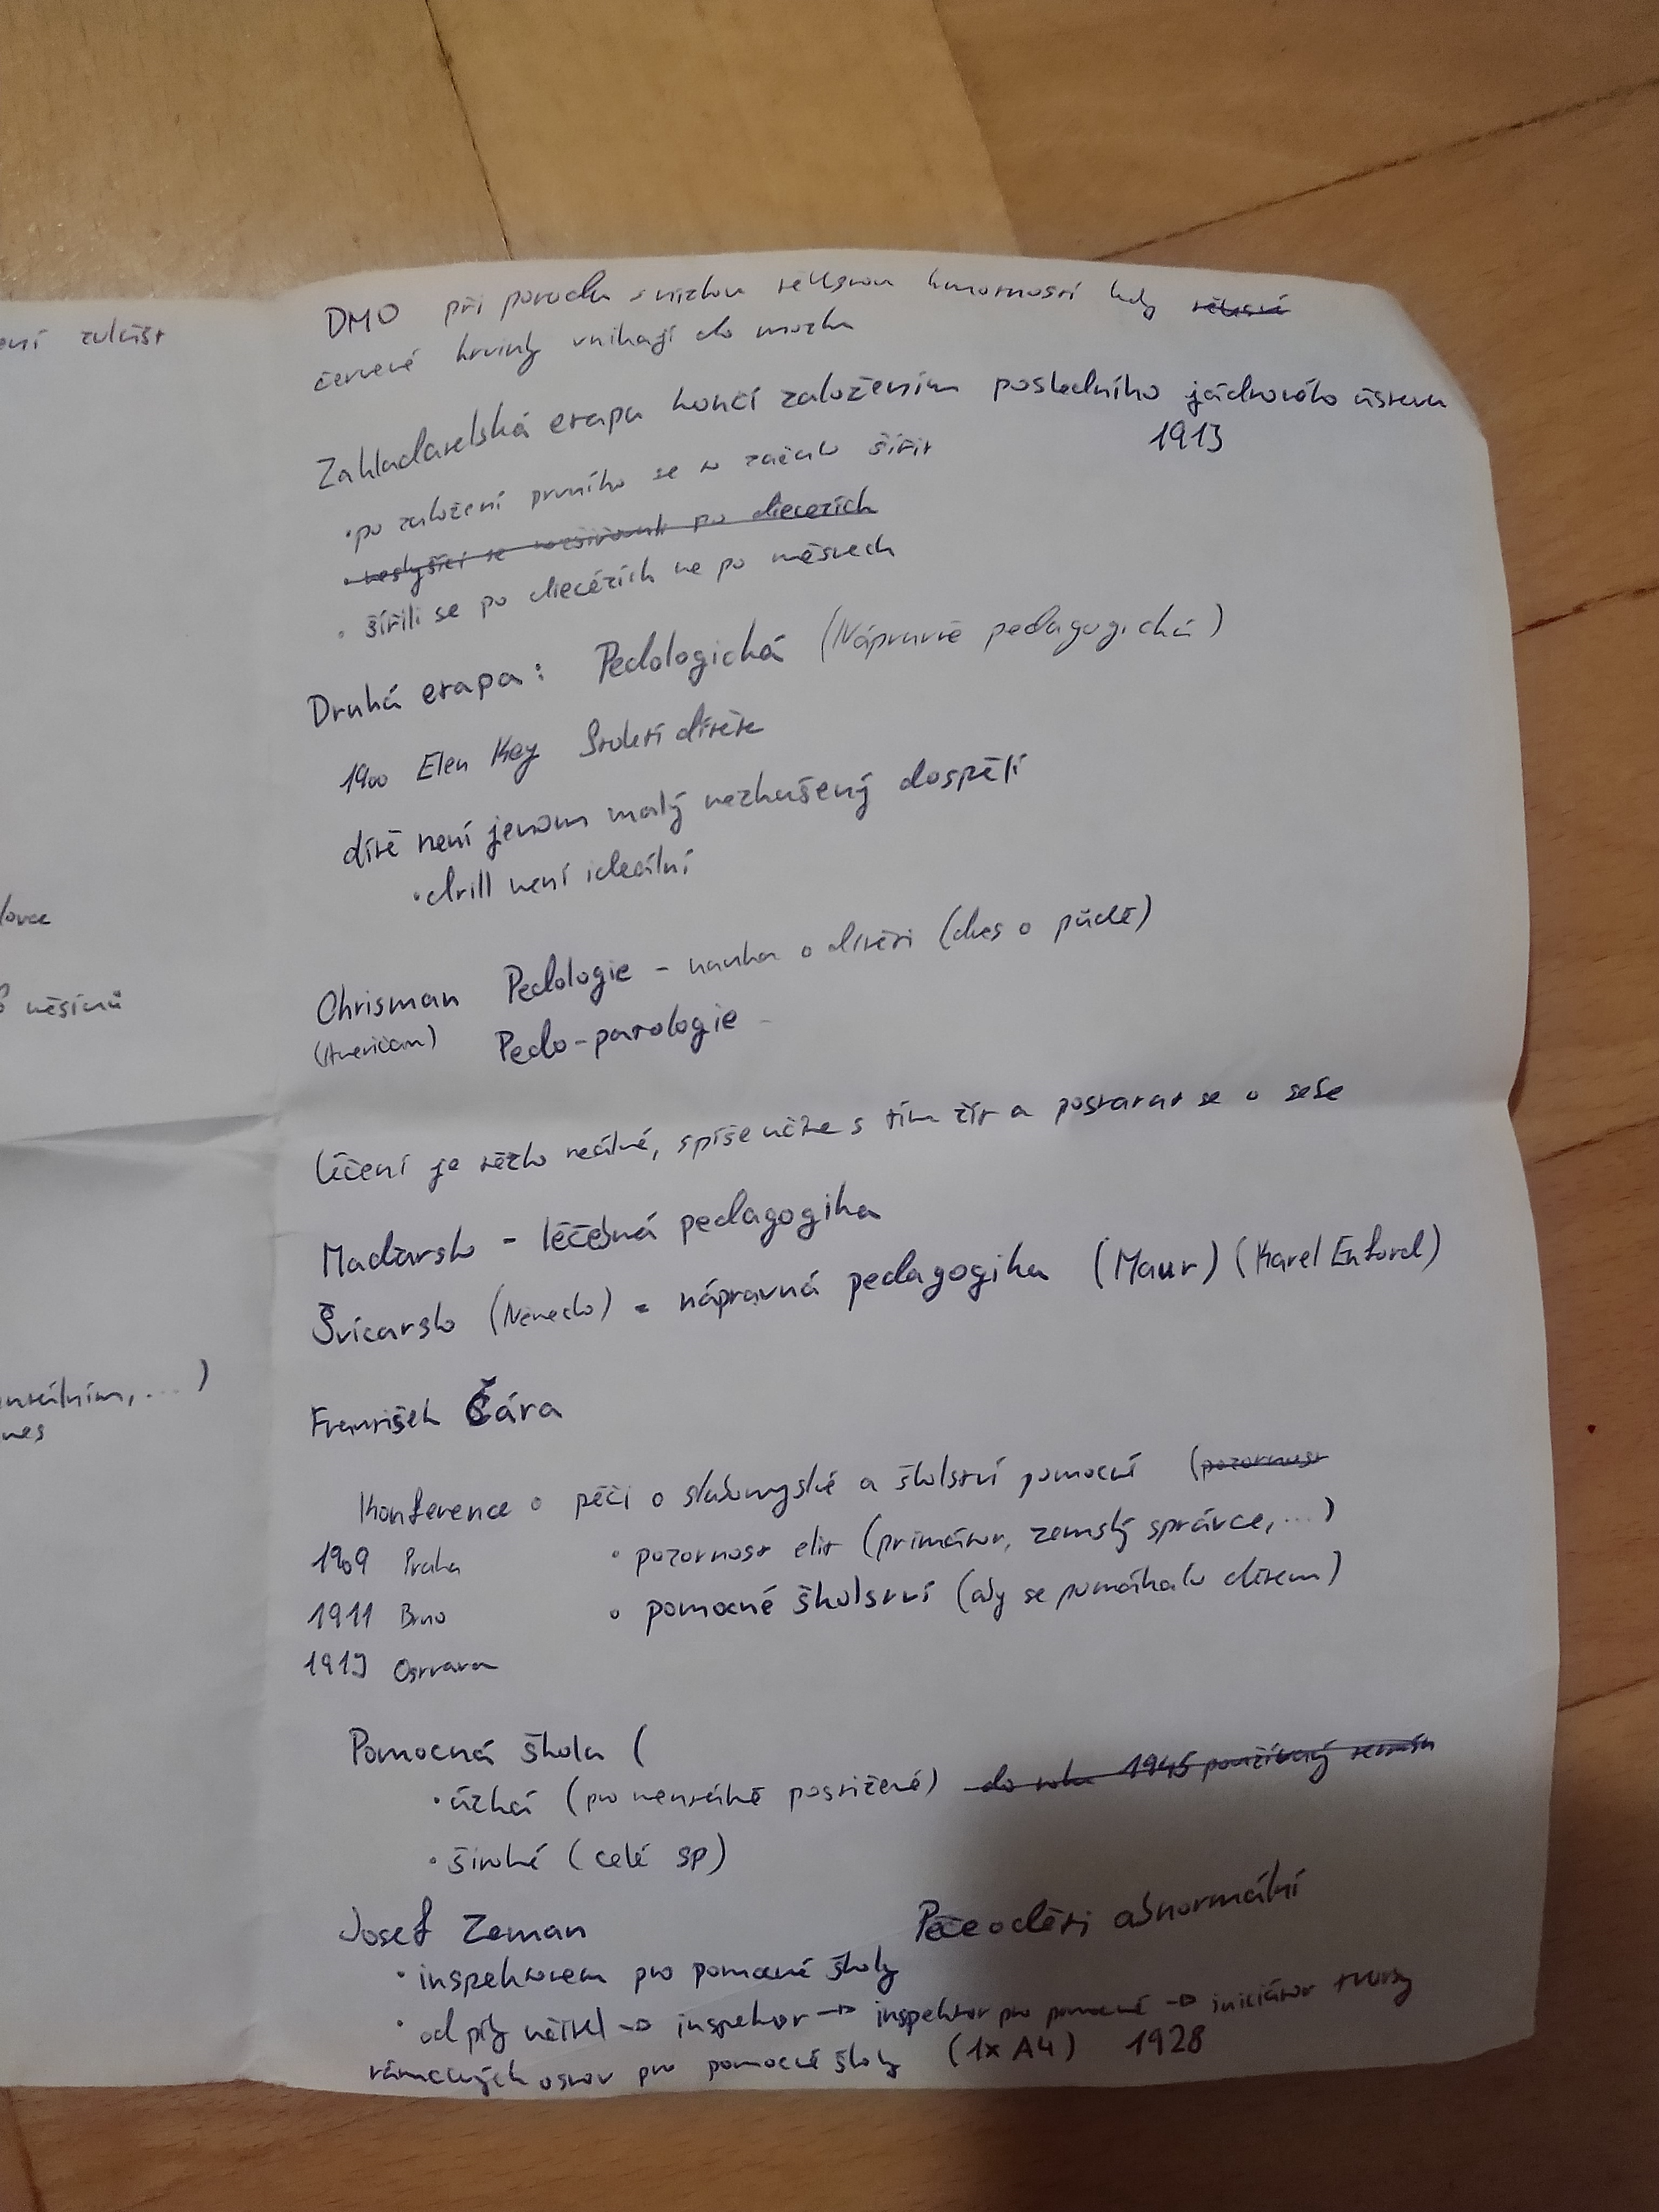 ení zvlášt
DMO při porodu s nízkou tělesnou hmotností kdy tělesné
červené krvinky vnikají do mozku
Zakladatelská etapa končí založením posledního jádrového ústavu
1913
• po založení prvního se to začalo šířit
• neslyšící se rozšiřovali po diecezích
• šířili se po diecézích ne po městech
Druhá etapa: Pedologická (Nápravně pedagogická)
1900 Elen Key Století dítěte
dítě není jenom malý nezkušený dospělí
• drill není ideální
Chrisman Pedologie - nauka o dítěti (dnes o půdě)
(Američan) Pedo-patologie -
léčení je těžko reálné, spíše učíme s tím žít a postarat se o sebe
Maďarsko - léčebná pedagogika
Švícarsko (Německo) - nápravná pedagogika (Maur) (Karel )
František Čára
Konference o péči o slabomyslné a školství pomocné (pozornost
1909 Praha • pozornost elit (primátor, zemský správce, ...)
1911 Brno • pomocné školství (aby se pomáhalo dětem)
1913 Ostrava
Pomocná škola (
• úzká (pro mentálně postižené) do roku 1945 používaný termín
• široké (celé sp)
Josef Zeman Péče o děti abnormální
• inspektorem pro pomocné školy
• od píky učitel → inspektor → inspektor pro pomocné → iniciátor tvorby
rámcových osnov pro pomocné školy (1x A4) 1928
lovce
měsíců
entálním, ... )
nes